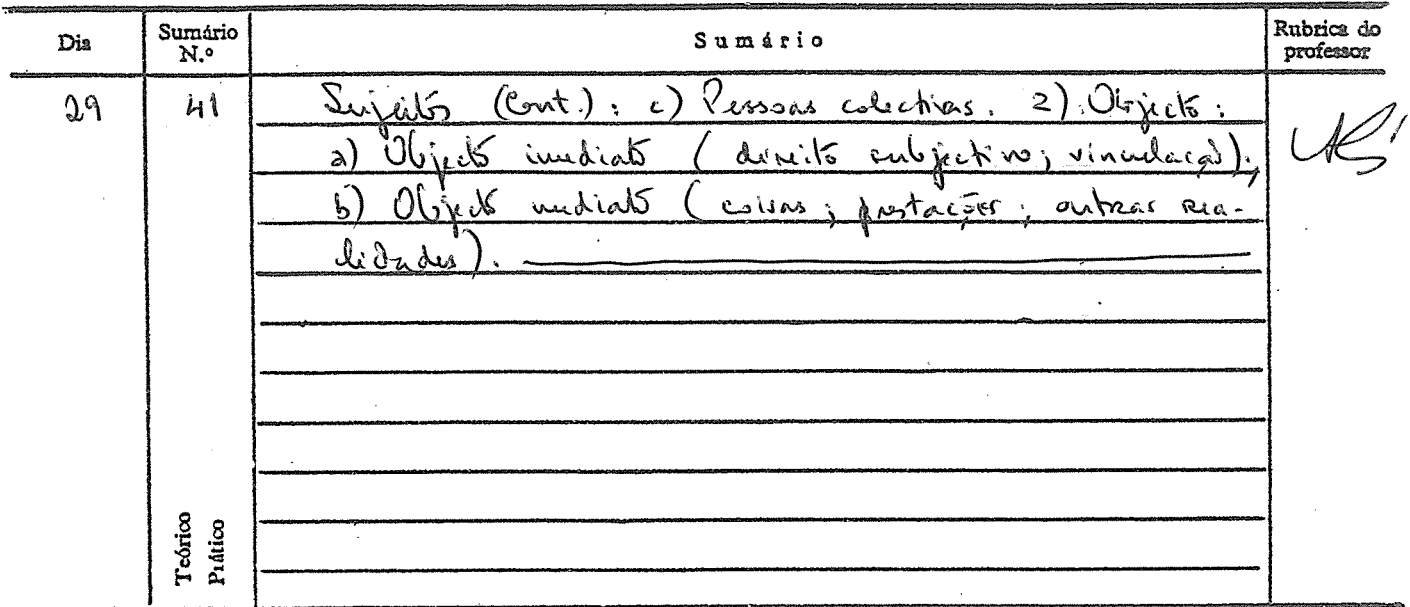 Dia Sumário N.º Sumário Rubrica do professor
29 41 Sujeitos (Cont.): c) Pessoas colectivas. 2) Objecto:
a) Objecto imediato (direito subjectivo; vinculação).,
b) Objecto mediato (coisas; prestações; outras rea-
lidades).
Teórico
Prático